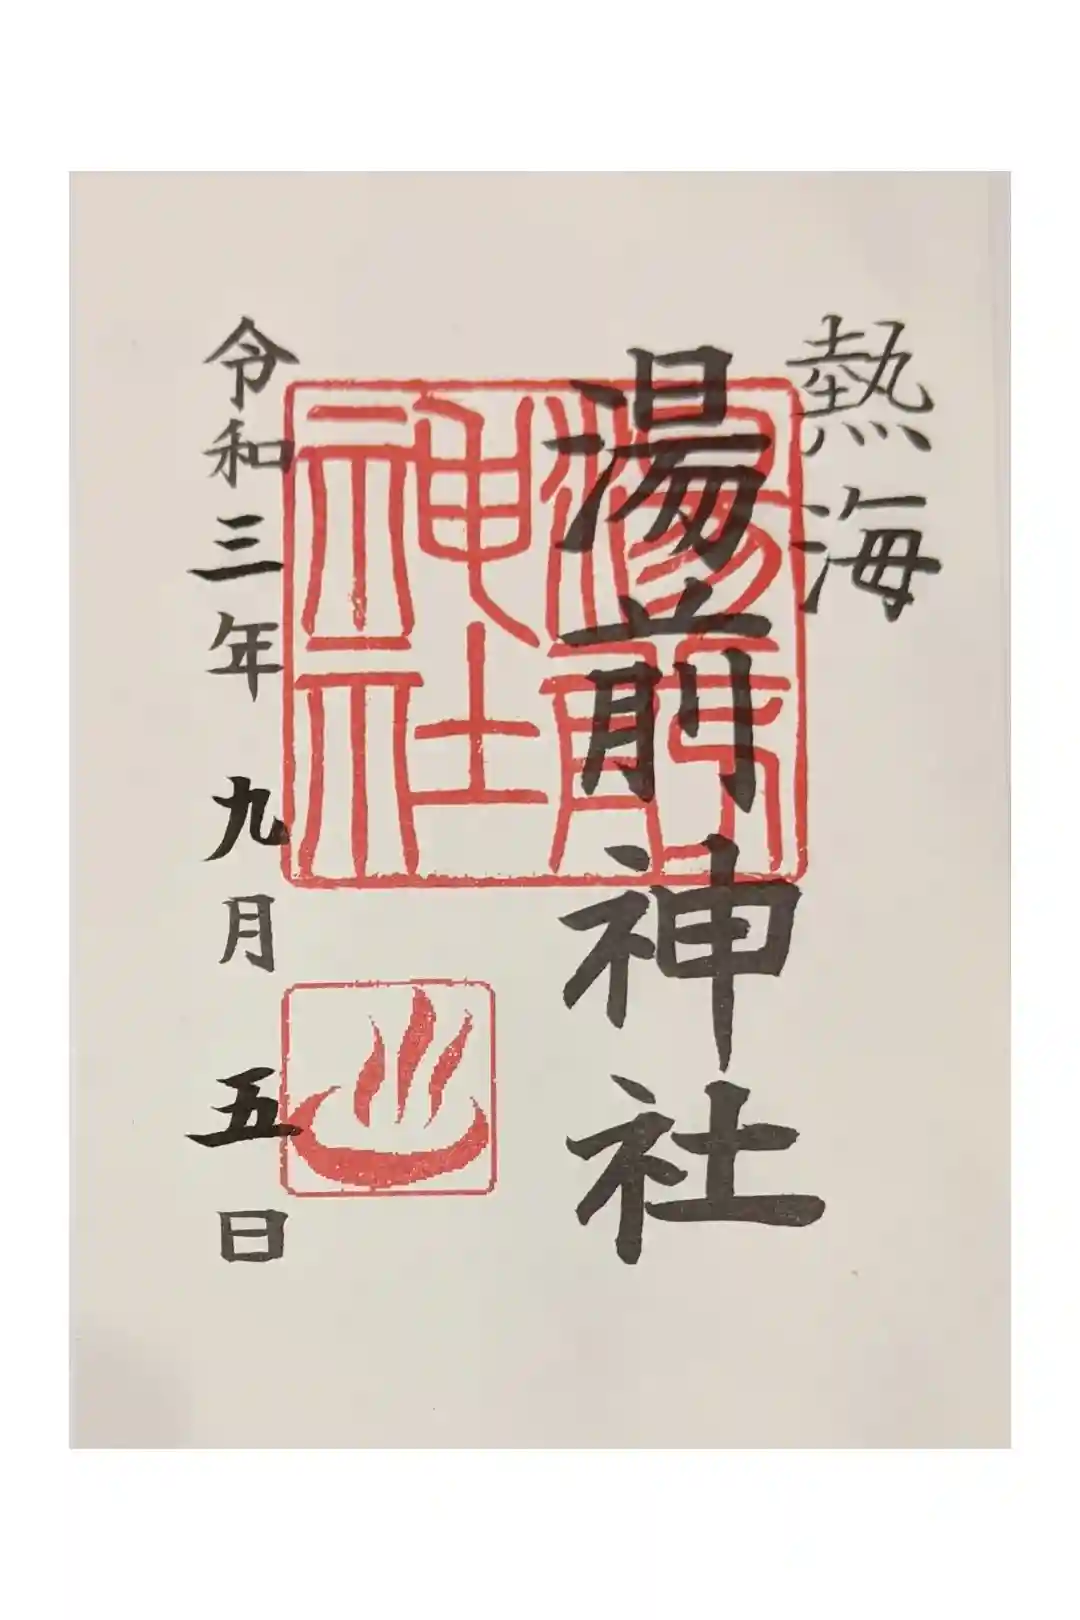 熱海
湯前神社
湯前神社
令和三年九月五日